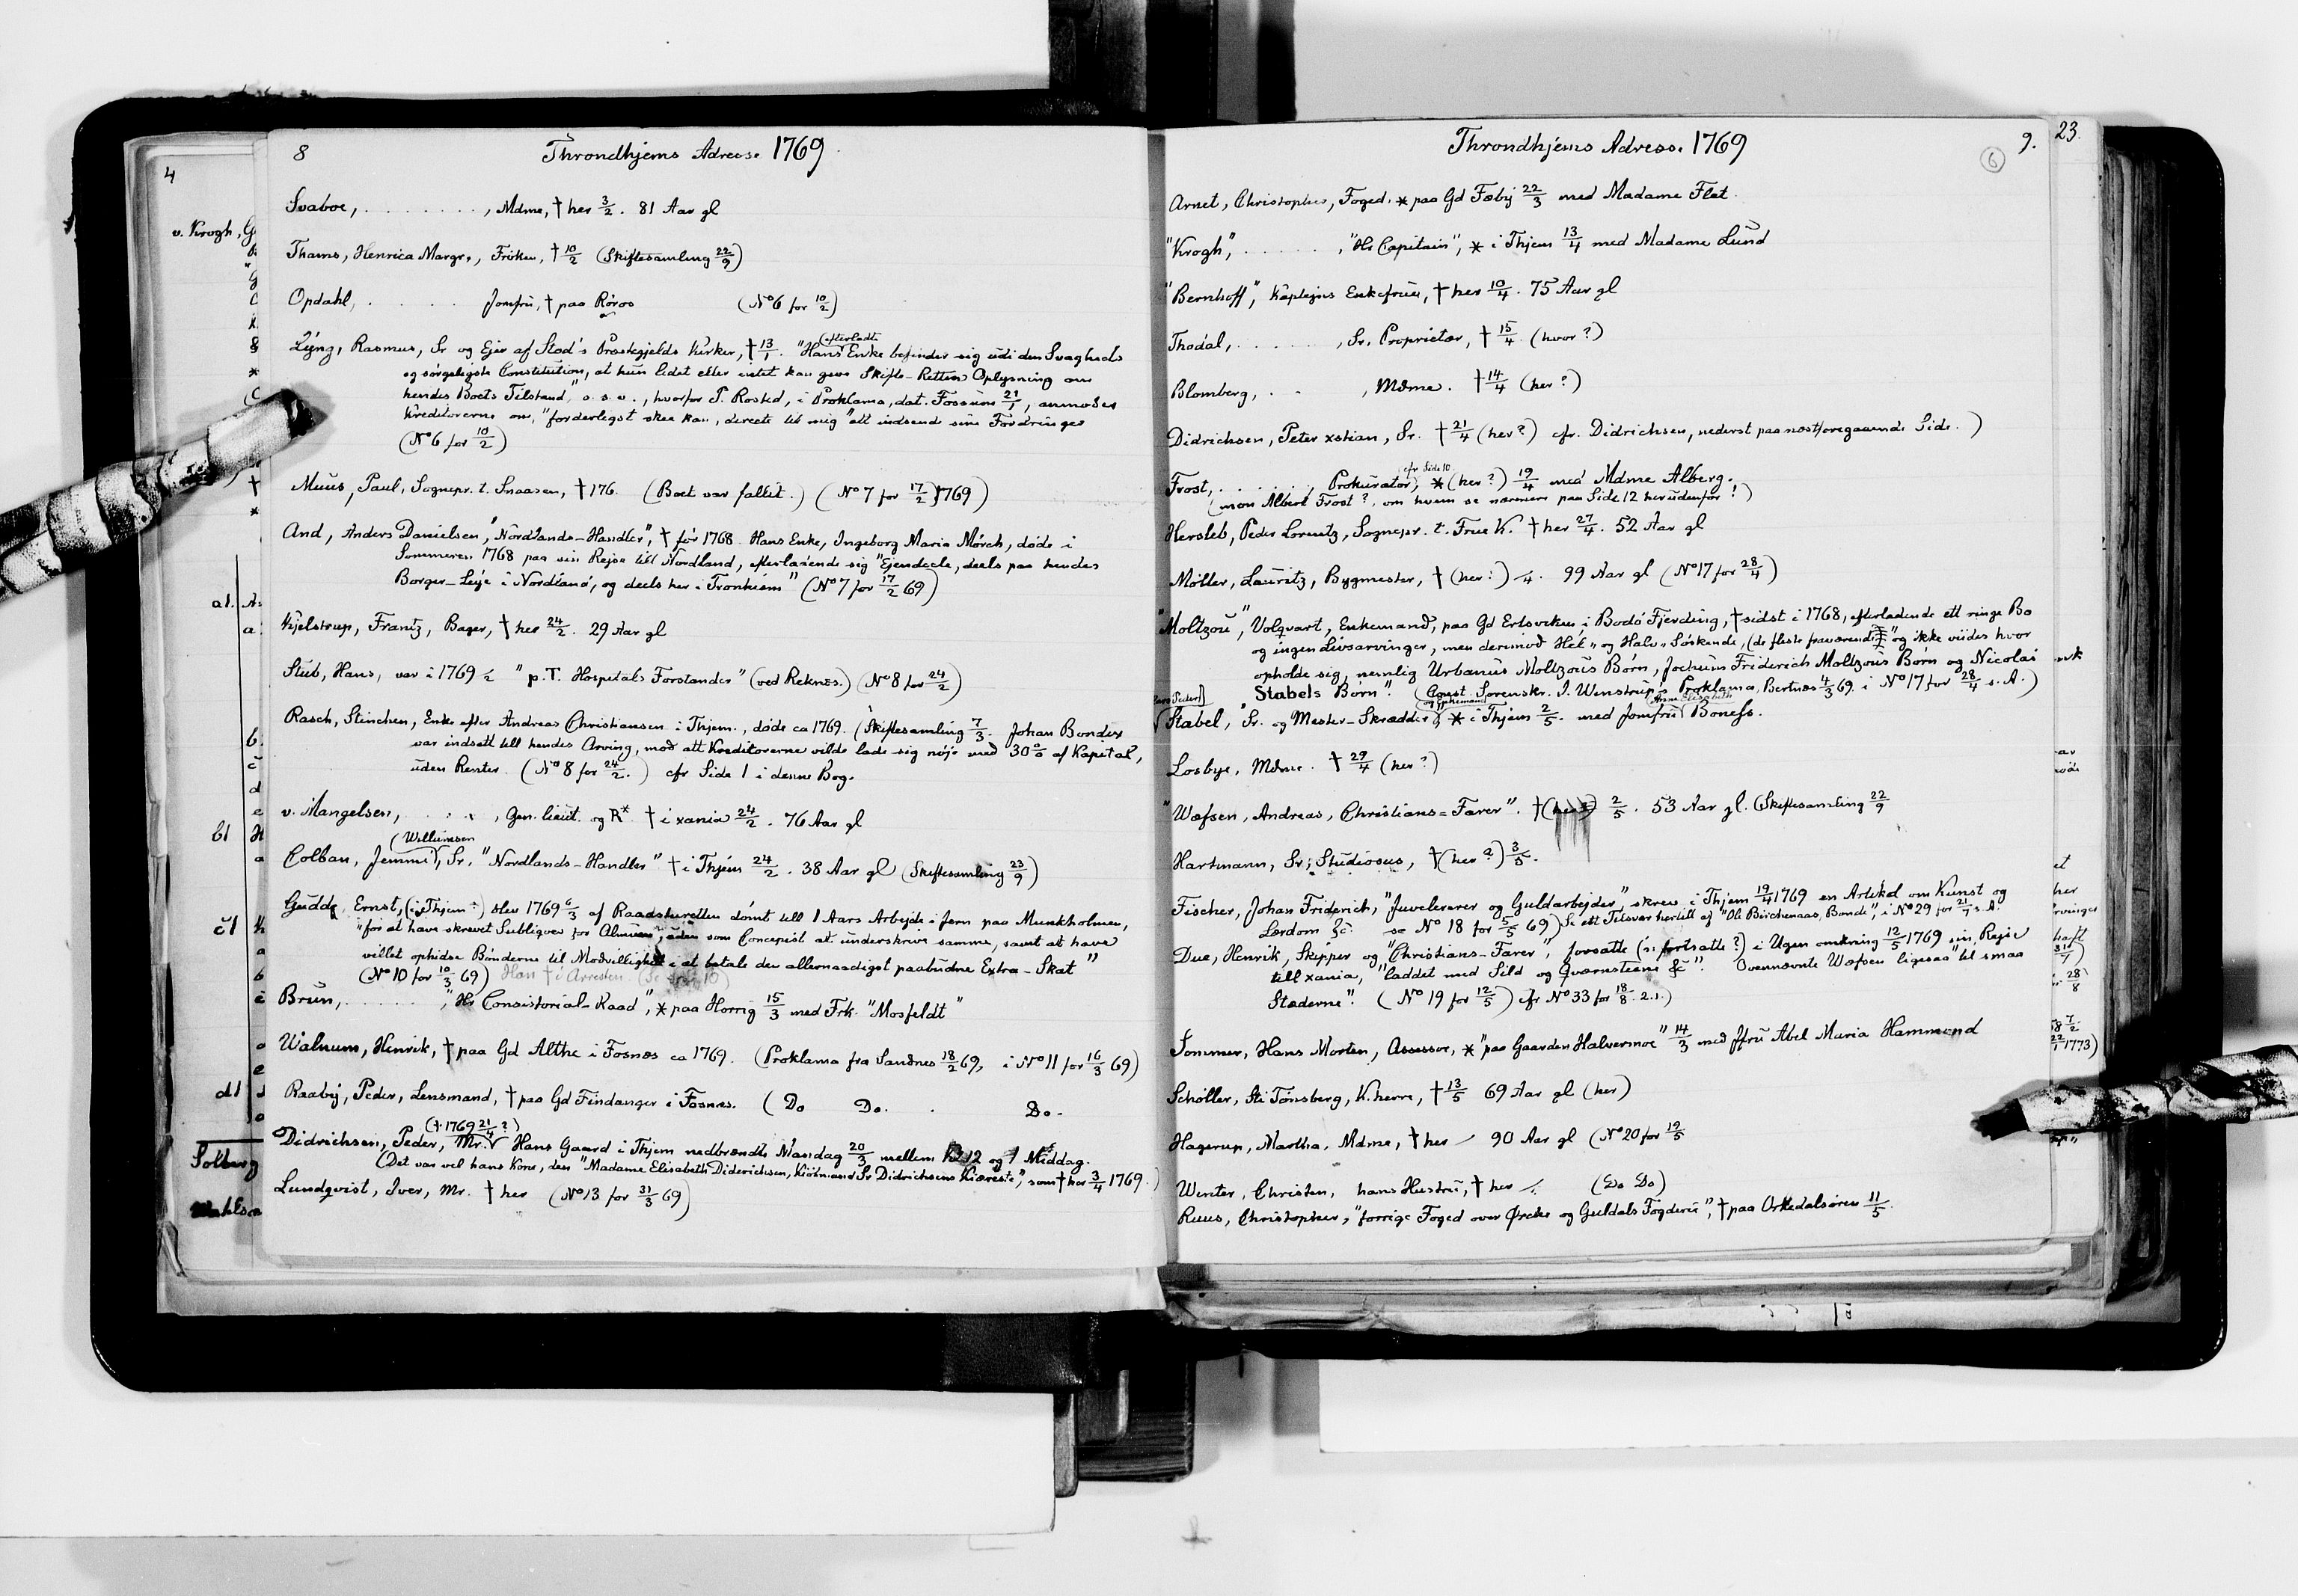 8 Throndhjems Adresse 1769
Svaboe, . . . . . . . , Mdme, † her 3/2. 81 Aar gl
Thams, Henrica Margr., Fröken, † 10/2 (Skiftesamling 22/9)
Opdahl, . . . . . Jomfru, † paa Röros (No 6 for 10/2)
Lyng, Rasmus, Sr og Ejer af Stod's Præstegjelds Kirker, † 13/1. "Hans (efterladte) Enke befinder sig udi den Svagheds
og sörgeligste Constitution, at hun lidet eller intet kan give Skifte-Retten Oplysning om
hendes Boets Tilstand," o. s. v., hvorfor P. Rosted, i Proklama, dat. Fossum 21/1, anmoder
Kreditorerne om, "forderligst skee kan, directe til mig" att indsende sine Fordringer
(No 6 for 10/2)
Muus, Paul, Sognepr. t. Snaasen, † 176. (Boet var fallit.) (No 7 for 17/2 1769)
And, Anders Danielsen, "Nordlands-Handler", † för 1768. Hans Enke, Ingeborg Maria Mörch, döde i
Sommeren 1768 paa sin Rejse till Nordland, efterladende sig "Ejendeele, deels paa hendes
Borger-Leje i Nordland, og deels her i Tronhiem" (No 7 for 17/2 69)
Kjelstrup, Frantz, Bager, † her 24/2. 29 Aar gl
Stub, Hans, var i 1769 /2 "p.T. Hospitals Forstander" (ved Reknes.) (No 8 for 24/2)
Rasch, Stinchen, Enke efter Andreas Christiansen i Thjem., döde ca 1769. (Skiftesamling 7/3. Johan Bonder
var indsatt till hendes Arving, mod att Kreditorerne vilde lade sig nöje med 30% af Kapital,
uden Renter. (No 8 for 24/2.) cfr Side 1 i denne Bog.
v. Mangelsen, . . . . , Gen. lieut. og R* † i xania 24/2. 76 Aar gl
(Willumsen
Colban, Jemmi, Sr, "Nordlands-Handler" † i Thjem 24/2. 38 Aar gl (Skiftesamling 23/9)
Gudde, Ernst, (i Thjem?) blev 1769 6/3 af Raadstueretten dömt till 1 Aars Arbejde i Jern paa Munkholmen,
"for at have skrevet Subliquer for Almuen, uden som Concepist at underskrive samme, samt at have
villet ophidse Bönderne til Modvillighet i at betale den allernaadigst paabudne Extra-Skat"
(No 10 for 10/3 69) Han † i Arresten. (Se Side 10)
Brun, . . . . . . , "Hr Consistorial-Raad", * paa Horrig 15/3 med Frk. "Mosfeldt"
Walnum, Henrik, † paa Gd Althe i Fosnæs ca 1769. (Proklama fra Sandnes 18/2 69, i No 11 for 16/3 69)
Raaby, Peder, Lensmand, † paa Gd Findanger i Fosnæs. (Do Do. Do.
(† 1769 21/4 ?)
Didrichsen, Peder, Mr. Hans Gaard i Thjem nedbrændte Mandag 20/3 mellem Kl 12 og 1 Middag.
(Det var vel hans Kone, den "Madame Elisabeth Diderichsen, Kiöbmand Sr Didrichsens Kiæreste", som † her 3/4 1769.)
Lundqvist, Iver, Mr. † her (No 13 for 31/3 69)
Throndhjems Adresse 1769 9.
6
Arnet, Christopher, Foged, * paa Gd Fæby 22/3 med Madame Flet.
"Krogh", . . . . . . , "Hr Capitain", * i Thjem 13/4 med Madame Lund
"Bernhoff", Kaptejns Enkefrue, † her 10/4. 75 Aar gl
Thodal, . . . . . . , Sr, Proprietær, † 15/4 (hvor?)
Blomberg, . . , Mdme. † 14/4 (her?)
Didrichsen, Peter xstian, Sr. † 21/4 (her?) cfr. Didrichsen, nederst paa næstforegaaende Side.)
cfr Side 10
Frost, . . . . . . , Prokurator, * (her?) 19/4 med Mdme Alberg.
(mon Albert Frost?, om hvem se nærmere paa Side 12 herudenfor!)
Hersleb, Peder Lorentz, Sognepr. t. Frue K. † her 27/4. 52 Aar gl
Möller, Lauritz, Bygmester, † (her?) /4. 99 Aar gl (No 17 for 28/4)
"Moltzou", Volqvart, Enkemand, paa Gd Ertsveken i Bodö Fjerding, † sidst i 1768, efterladende ett ringe Bo
og ingen Livsarvinger, men derimod Hel= og Halv=Söskende, (de fleste fraværende) "og ikke viides hvor
opholde sig, nemlig Urbanus Moltzous Börn, Jochum Friderich Moltzous Börn og Nicolai
Stabels Börn". (Const. Sorenskr. J. Wenstrup's Proklama, Bertnæs 4/3 69. i No 17 for 28/4 s. A.)
og Enkemand Anne Elisabeth
Stabel, Sr. og Mester-Skrædder, * i Thjem 2/5. med Jomfru Bonefs.
Losbye, Mdme. † 29/4 (her?)
"Wæfsen, Andreas, Christians=Farer". † 2/5. 53 Aar gl. (Skiftesamling 22/9
Hartmann, Sr, Studiosus, † (her?) 3/5.
Fischer, Johan Friderich, "Juvelerer og Guldarbejder", skrev i Thjem 19/4 1769 en Artikel om Kunst og
Lerdom &c. se No 18 for 5/5 69) Se ett Tilsvar hertill af "Ole Birchenaas, Bonde", i No 29 for 21/7 s. A.
Due, Henrik, Skipper og "Christians-Farer", forsatte (ɔ: fortsatte?) i Ugen omkring 12/5 1769 sin Rejse
till xania, "laddet med Sild og Qværnsteene &c". Ovennævnte Wæfsen ligesaa "til smaa
Stæderne". (No 19 for 12/5) cfr No 33 for 18/8. 2.1.)
Sommer, Hans Morten, Assessor, * "paa Gaarden Halvermoe" 14/3 med Jfru Abel Maria Hammond
Schöller, Sti Tönsberg, K.herre, † 13/5 69 Aar gl (her)
Hagerup, Martha, Mdme, † her 90 Aar gl (No 20 for 19/5
Winter, Christen, hans Hustru, † her (Do Do)
Ruus, Christopher, "forrige Foged over Örche og Guldals Fogderie", † paa Orkedalsören 11/5.
4
v. Krogh, G
a1.
b1
c1
d1
Solberg
23.